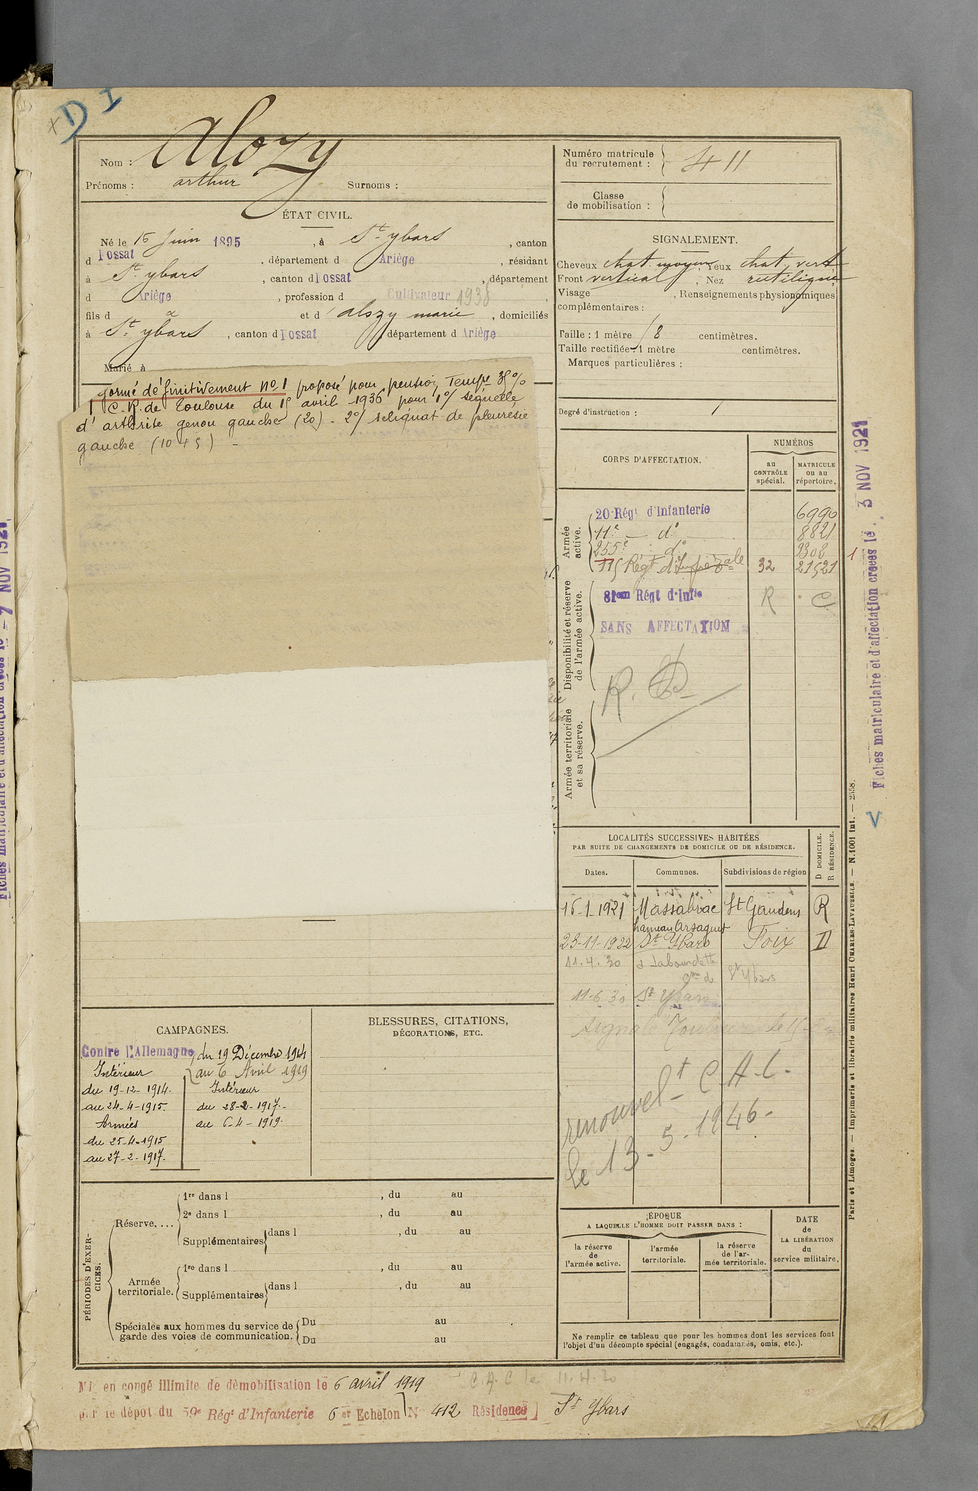 DI
Nom : Alozy
Prénoms : arthur Surnoms :
ÉTAT CIVIL.
Né le 15 Juin 1895, à St ybars, canton
d Fossat, département d Ariège, résidant
à St ybars, canton d Fossat, département
d Ariège, profession d Cultivateur 1938
fils d et d' alozy marie, domiciliés
à St ybars, canton d Fossat département d Ariège
Marié à
formé définitivement No 1 proposé pour pension Tempe 35%
C.R. de Toulouse du 15 avril 1936 pour 1°/ séquelle
d'arthrite genou gauche (20) - 2°/ reliquat de pleurésie
gauche (10+5) -
Numéro matricule du recrutement : 411
Classe de mobilisation :
SIGNALEMENT.
Cheveux chat. moyen, Yeux chat. vert
Front vertical, Nez rectiligne
Visage , Renseignements physionomiques
complémentaires :
Taille : 1 mètre 8 centimètres.
Taille rectifiée 1 mètre centimètres.
Marques particulières :
Degré d'instruction :
CORPS D'AFFECTATION.
NUMÉROS
au CONTRÔLE spécial.
MATRICULE ou au répertoire.
Armée active.
20 Régt d'Infanterie 6990
11e - d° 8821
255e d° 9306
115 Régt d'Infrie 32 21521
Disponibilité et réserve de l'armée active.
81eme Régt d'Infie R C
SANS AFFECTATION
Armée territoriale et sa réserve.
R. D
LOCALITÉS SUCCESSIVES HABITÉES
PAR SUITE DE CHANGEMENTS DE DOMICILE OU DE RÉSIDENCE.
Dates. Communes. Subdivisions de région
D DOMICILE. R RÉSIDENCE.
16-1-1921 Massabrac St Gaudens R
hameau Arsaguet
23-11-1922 St Ybars Foix D
11.4.30 St Ybars
11-6.30 St Ybars
renouvelt C.A.C.
le 13-5-1946-
CAMPAGNES.
Contre l'Allemagne du 19 Décembre 1914
au 6 Avril 1919
Intérieur
du 19-12-1914.
au 24-4-1915.
Armées
du 25-4-1915
au 27-2-1917.
Intérieur
du 28-2-1917-
au 6-4-1919.
BLESSURES, CITATIONS,
DÉCORATIONS, ETC.
PÉRIODES D'EXERCICES.
Réserve, ...
1re dans l , du au
2e dans l , du au
Supplémentaires dans l , du au
Armée territoriale.
1re dans l , du au
Supplémentaires dans l , du au
Spéciales aux hommes du service de
garde des voies de communication.
Du au
Du au
ÉPOQUE
A LAQUELLE L'HOMME DOIT PASSER DANS :
la réserve de l'armée active.
l'armée territoriale.
la réserve de l'armée territoriale.
DATE de LA LIBÉRATION du service militaire.
Ne remplir ce tableau que pour les hommes dont les services font
l'objet d'un décompte spécial (engagés, condamnés, omis, etc.).
Mis en congé illimité de démobilisation le 6 avril 1919
par le dépot du 59e Régt d'Infanterie 6er Echelon N° 412 Résidence St Ybars
C.A.C le 11.4.30
Fiches matriculaire et d'affectation créées le 3 NOV 1921
Paris et Limoges. — Imprimerie et librairie militaires Henri CHARLES-LAVAUZELLE. — N. 1001 Int. — 2558.
Fiches matriculaire et d'affectation créées le 7 NOV 1921